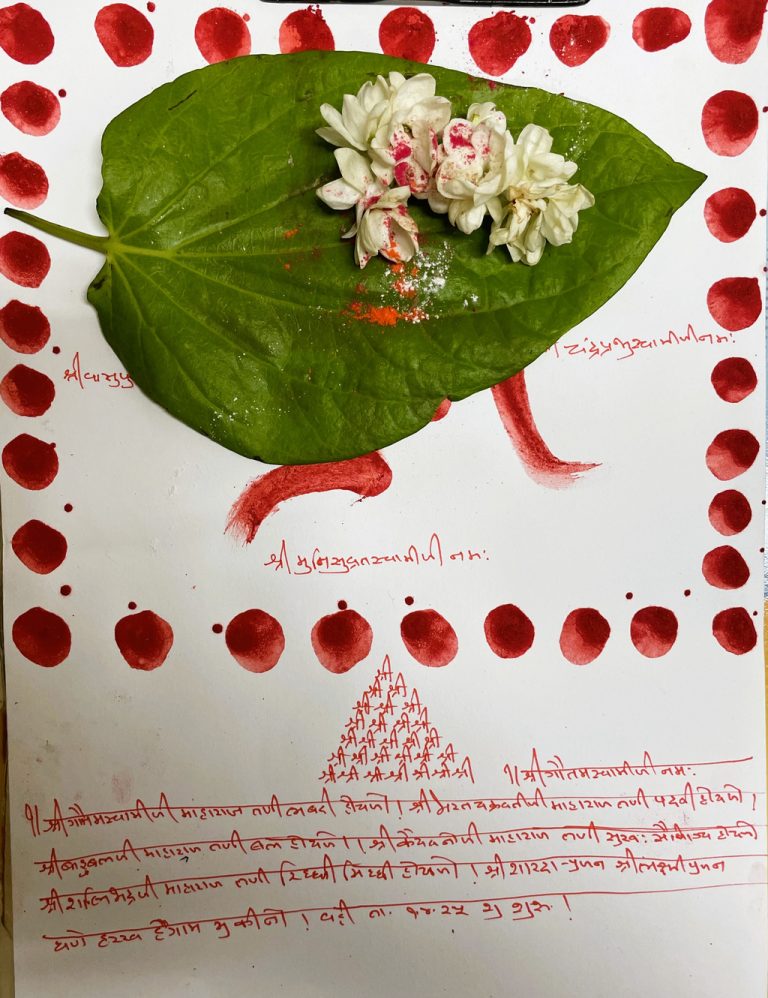 श्री वासुपु
चंद्रप्रभुस्वामीजी नमः
श्री मुनिसुव्रतस्वामीजी नमः
श्री
श्री श्री
श्री श्री श्री
श्री श्री श्री श्री
श्री श्री श्री श्री श्री
श्री श्री श्री श्री श्री श्री
श्री श्री श्री श्री श्री श्री श्री
॥ श्री गौतमस्वामीजी नमः
॥ श्री गौतमस्वामीजी माहाराज तणी लबदी होयजो । श्री भरतचक्रवर्तीजी माहाराज तणी पदवी होयजो ।
श्री बाहुबलजी माहाराज तणी बल होयजो । । श्री कैयवनोजी माहाराज तणी सुख: सौभाग्य होयजो
श्री शालिभद्रजी माहाराज तणी रिध्धी सिध्धी होयजो । श्री शारदा-पुजन श्री लक्ष्मी पुजन
घणे हरख । वही ता. शुरु ।